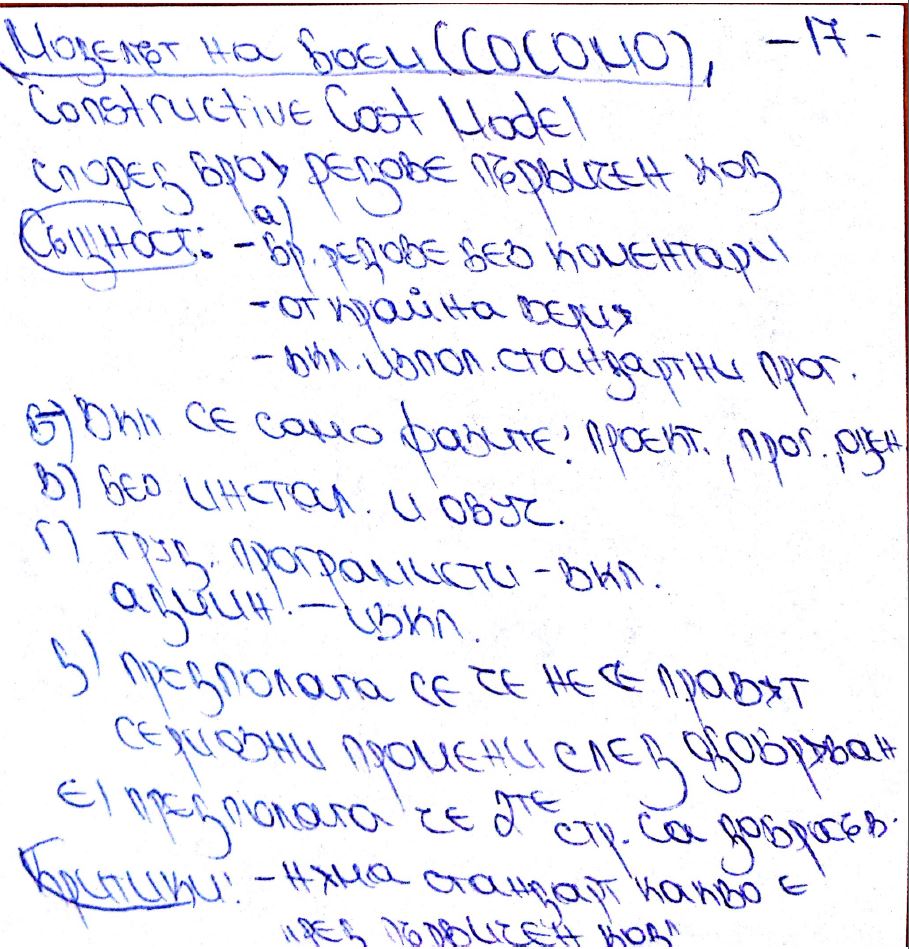 Моделът на Боем (COCOMO), -17-
Constructive Cost Model
според броя редове първичен код
Същност: а) - бр. редове без коментари
- от крайна версия
- вкл. изпол. стандартни прог.
б) Вкл се само фазите: проект., прог.,
в) без инстал. и обуч.
г) труд. програмисти - вкл.
админ. - изкл.
д) предполага се че не се правят
сериозни промени след одобряван
е) предполага че 2те стр. са добросъв.
Критики: - няма стандарт какво е
ред първичен код